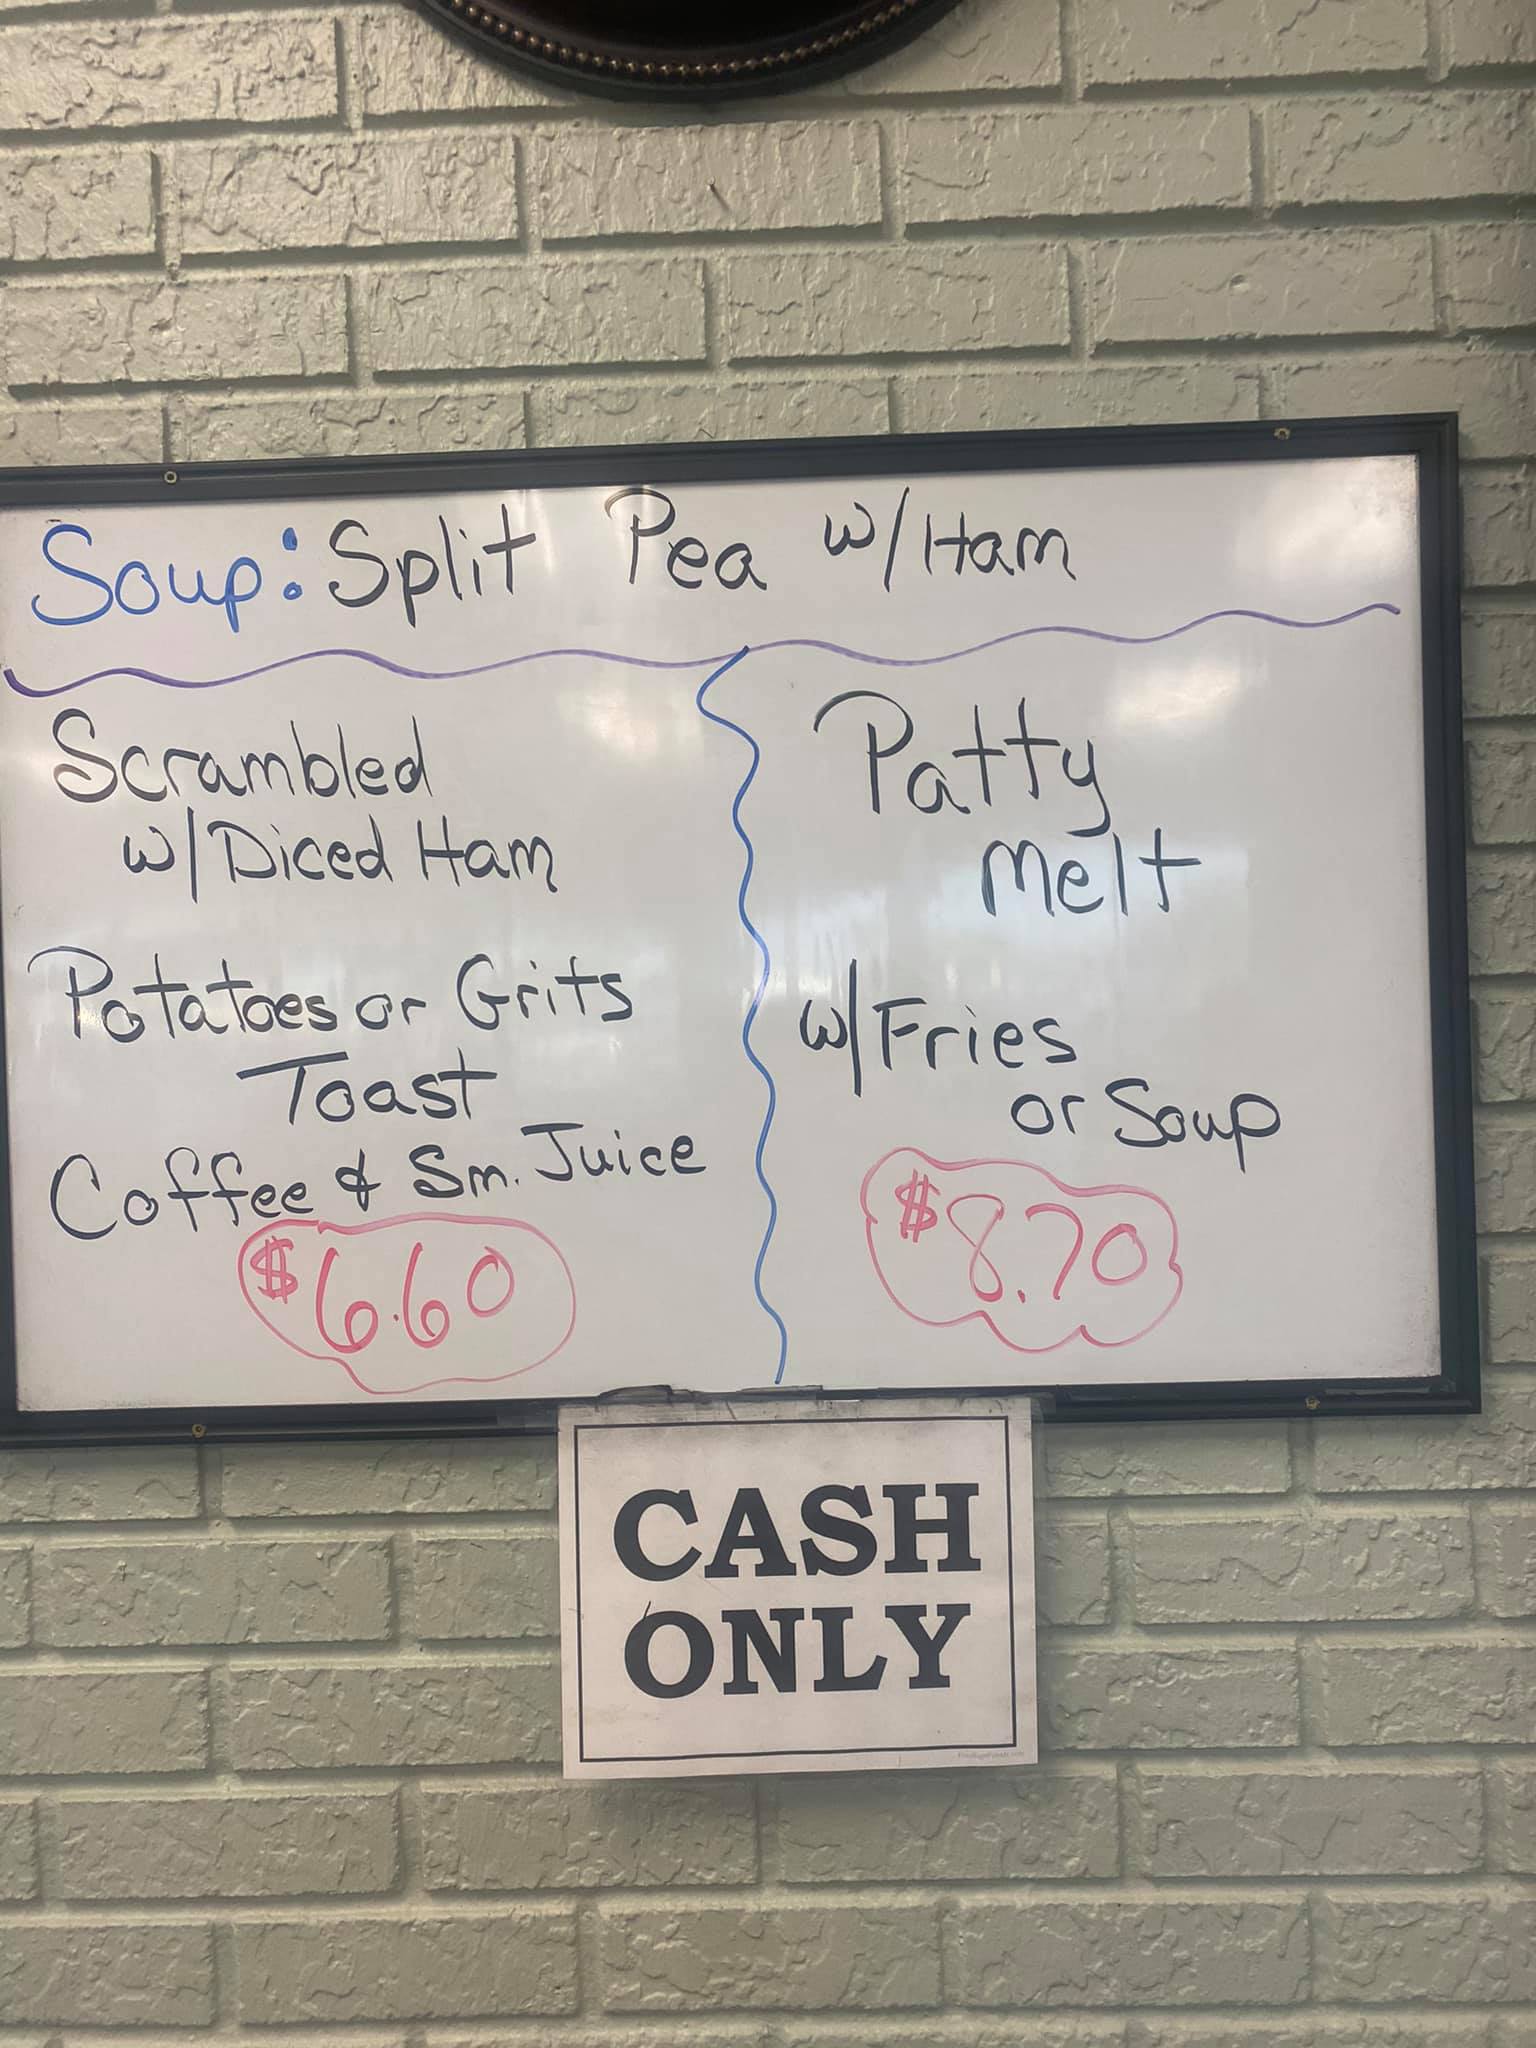 Soup: Split Pea w/Ham
Scrambled
w/Diced Ham
Potatoes or Grits
Toast
Coffee & Sm. Juice
$6.60
Patty
Melt
w/Fries
or Soup
$8.70
CASH
ONLY